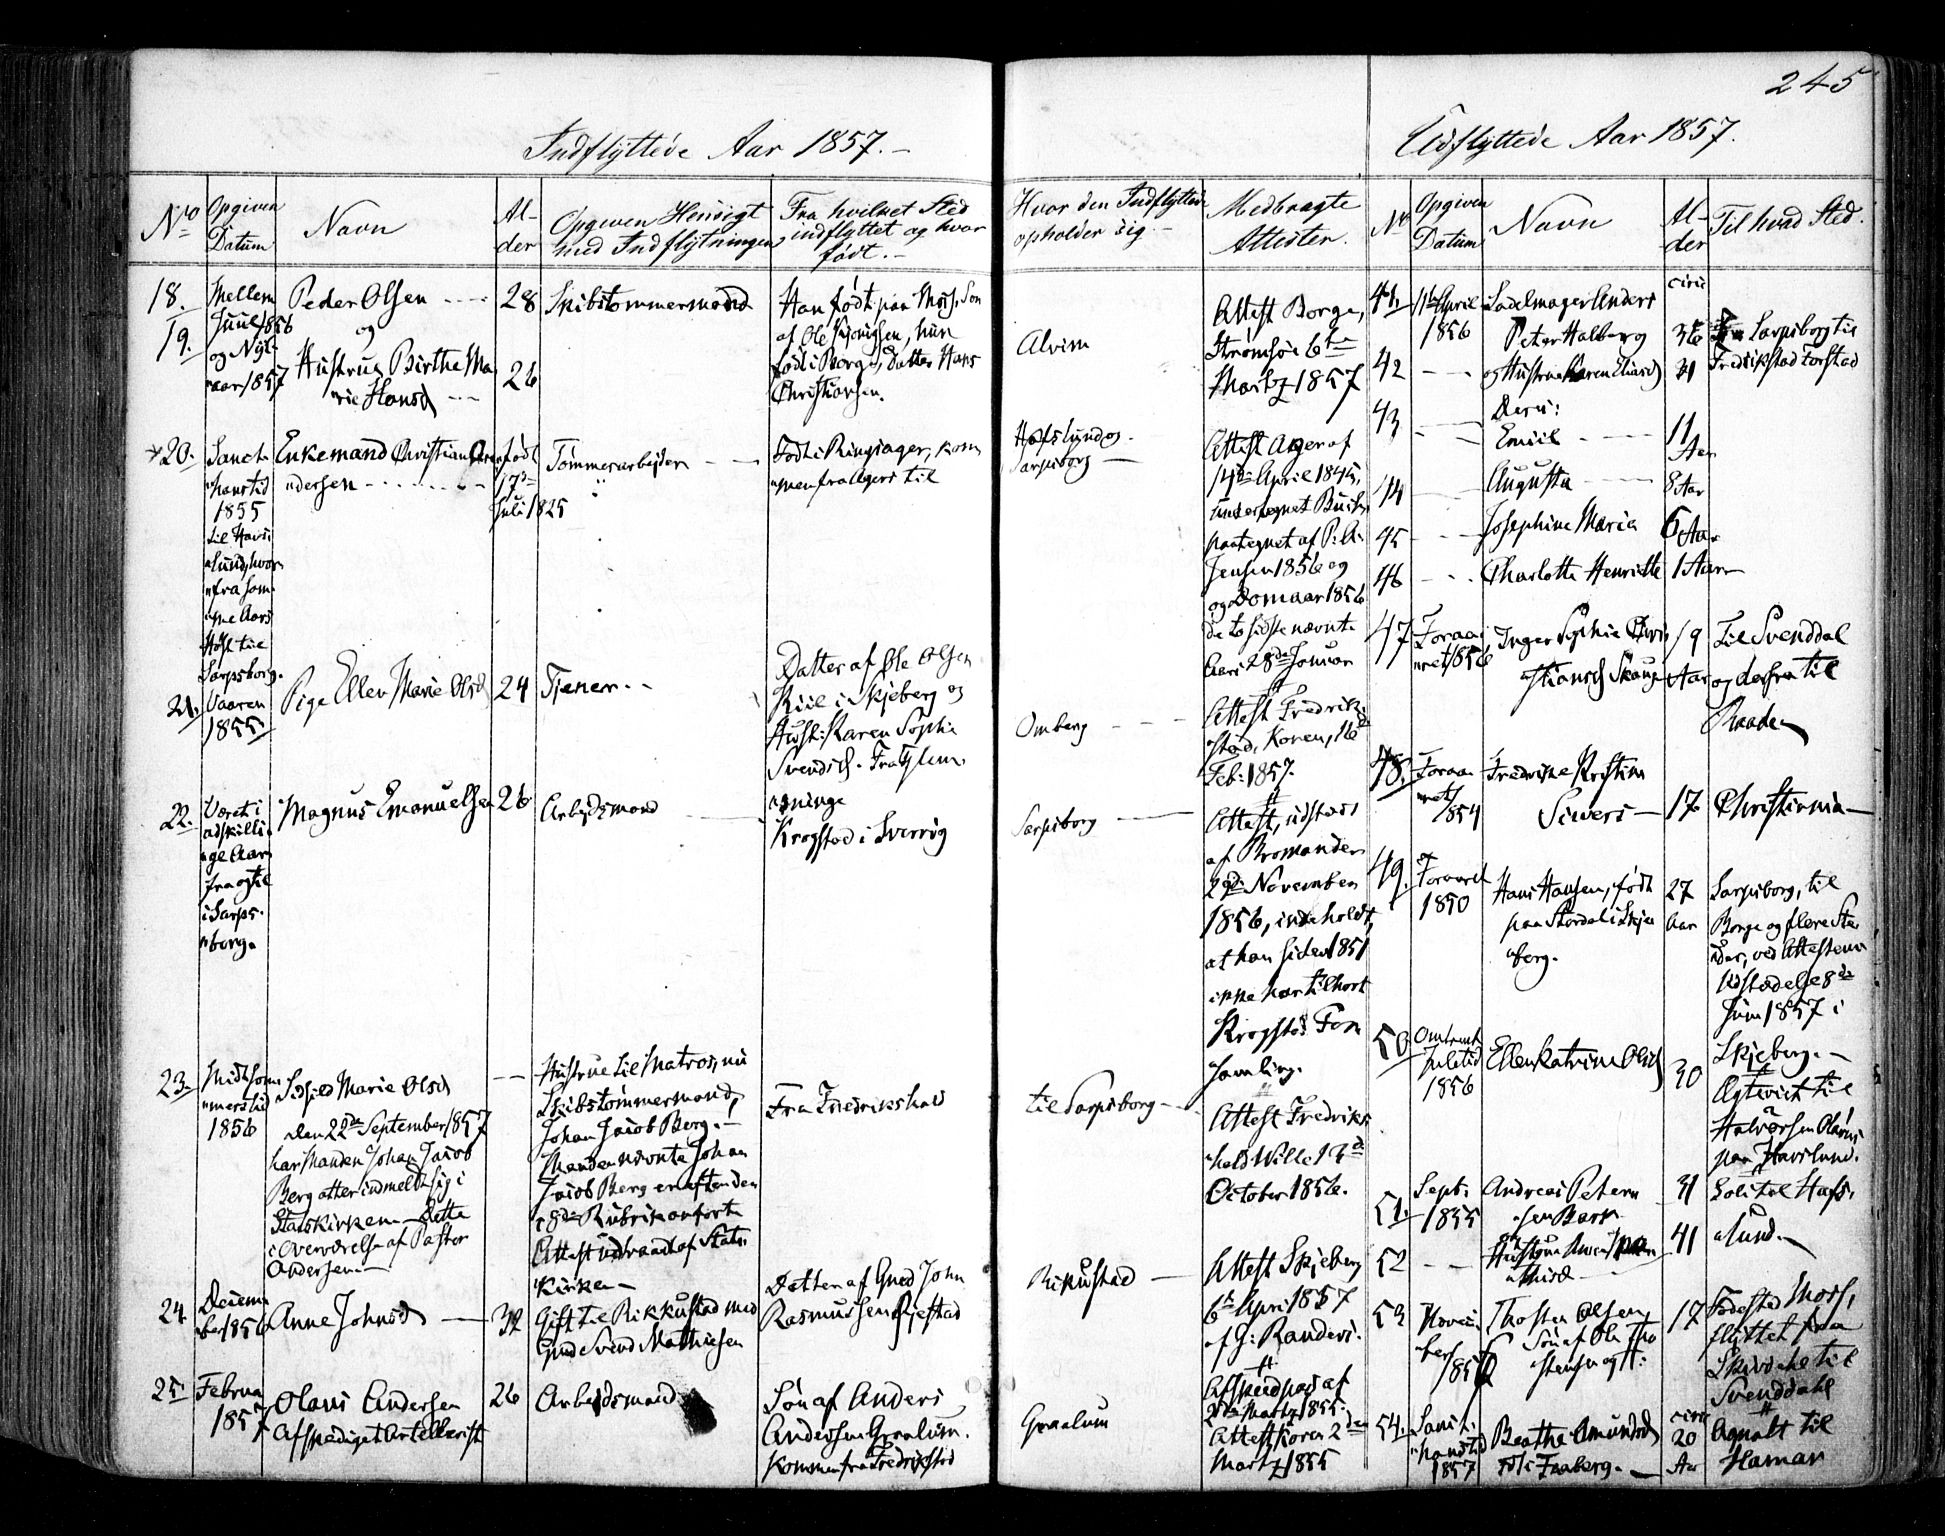 245
Indflyttede Aar 1857.
No
Opgiven Datum
Navn
Al-
der
Opgiven Hensigt
med Indflytningen
Fra hvilket Sted
indflyttet og hvor
født.
Hvor den Indflyttede
opholder sig
Medbragte
Attester.
18.
19.
Mellem
Juul 1856
og Nyt-
aar 1857
Peder Olsen
og
Hustrue Birthe Ma
rie Hansd
28
26
Skibstømmermand
Han født paa Moss, Søn
af Ole
hun
født i Borge, Datter Hans
Christiansen.
Alvim
Attest Borge,
6te
Marts 1857
20.
Sanct
hanstid
1855
til Havs
lund, hvor
fra som
me Aars
Høst til
Sarpsborg.
Enkemand Christian
dersen
født
17de
Juli 1825
Tømmerarbejder
Født i Ringsager, kom
men fra Agers til
Hafslund og
Sarpsborg
Attest Ager af
14de April 1845,
undertegnet
paategnet af P. A.
Jensen 1856 og
og Domaar 1856
de to sidstnævnte
28de Januar
21.
Vaaren
1855
Pige Ellen Marie Olsd
24
Tjener
Datter af Ole Olsen
Kiil i Skjeberg og
Hustr: Karen Sophie
Svendsd. Fra Glem
minge
Omberg
Attest Fredrik
stad, Koren, 16d
Feb: 1857.
22.
Været i
adskilli
ge Aar
fra og til
i Sarps
borg.
Magnus Emanuelsen
26
Arbejdsmand
Krogstad i Sverrig
Sarpsborg
Attest, udstædt
af Bromander
29de November
1856, indeholdt,
at han siden 1851
ikke har tilhørt
Krogstad For
samling.
23.
Midtsom
merstid
1856
Marie Olsd
den 22de September 1857
har Manden Johan Jacob
Berg atter indmeldt sig i
Statskirken. Dette
i Overværelse af Pastor
Andersen.
Hustrue til Matros, nu
Skibstømmermand,
Johan Jacob Berg.
Manden nævnte Johan
Jacob Berg er efter den
i 8de Rubrik anførte
Attest udtraadt af Stats
kirken
Fra Fredrikshald
til Sarpsborg
Attest Fredriks
hald Wille 13d
October 1856.
24
Decem
ber 1856
Anne Johnsd
32
Gift til Rikkustad med
Gmd Svend Mathiesen
Datter af Gmd John
Rasmussen
Rikustad
Attest Skjeberg
6te April 1857
af G: Randers.
25
Februa
1857
Olaus Andersen
Afskediget Artellerist
26
Arbejdsmand
Søn af Anders
Andersen Graalum.
Kommen fra Fredrikstad
Graalum
Afskedpas af
Martz 1855.
Attest Koren 2den
Martz 1855
Udflyttede Aar 1857.
No
Opgiven
Datum
Navn
Al-
der
Til hvad Sted.
41.
April
1856
Sadelmager Anders
Peter Halberg
circa
36
Sarpsborg til
Fredrikstad Forstad
42
og Hustrue Karen Eliasd
31
43
Deres:
Emiil
11
Aar
44
Augusta
8 Aar
45
Josephine Marie
6 Aar
46
Charlotte Henriette
1 Aar
47
Foraa
ret 1856
Inger Sophie Chri
stiansd Skaug
19
Aar
Til Svenddal
og derfra til
Raade
48.
Foraa
ret
1854
Fredrikke Kristine
Sivers
17
Christiania
49.
Foraaret
1850
Hans Hansen, født
paa Stordal i Skje
berg.
27
Aar
Sarpsborg, til
Borge og flere Ste
der, ved Attestens
Udstædelse 8de
Juni 1857 i
Skjeberg.
50
Omtrent
Juletid
1856
Ellen Katrine Olsd
30
Ægteviet til
Halvorsen
paa Havslund.
51.
Sept:
1855
Andreas Peter
sen
31
til Hafs
lund.
52
Hustrue
41
53
Novem
ber
1856
Thosten Olsen
Søn af Ole Tho
stensen og H:
17
Fødested Moss,
flyttet fra
til
Svenddahl
54.
Sanct
hanstid
1857
Beathe Amundsd
Faaberg.
circa
20
Aar
Agnalt til
Hamar